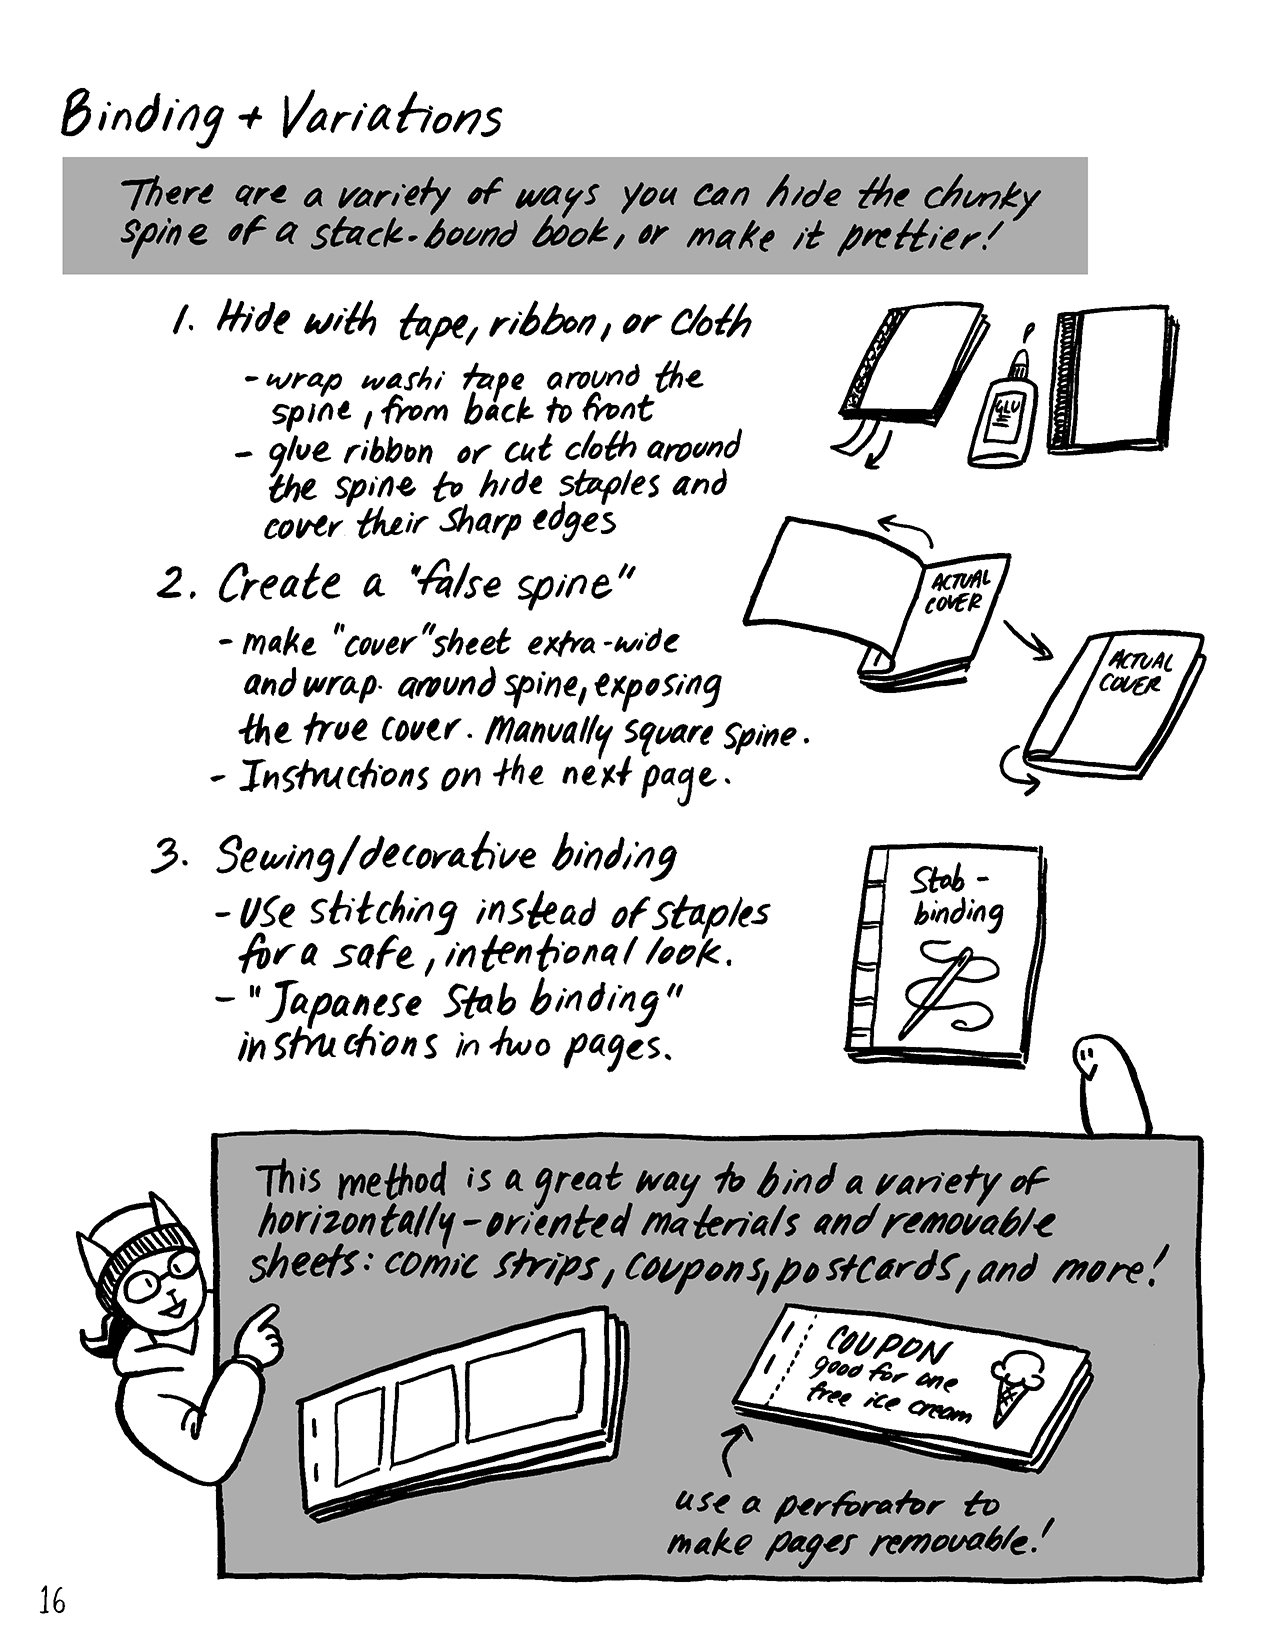 Binding + Variations
There are a variety of ways you can hide the chunky
spine of a stack-bound book, or make it prettier!
1. Hide with tape, ribbon, or cloth
- wrap washi tape around the
spine, from back to front
- glue ribbon or cut cloth around
the spine to hide staples and
cover their sharp edges
GLU
2. Create a "false spine"
- make "cover" sheet extra-wide
and wrap around spine, exposing
the true cover. Manually square spine.
- Instructions on the next page.
ACTUAL
COVER
ACTUAL
COVER
3. Sewing/decorative binding
- Use stitching instead of staples
for a safe, intentional look.
- "Japanese Stab binding"
instructions in two pages.
Stab-
binding
This method is a great way to bind a variety of
horizontally-oriented materials and removable
sheets: comic strips, coupons, postcards, and more!
COUPON
good for one
free ice cream
use a perforator to
make pages removable!
16